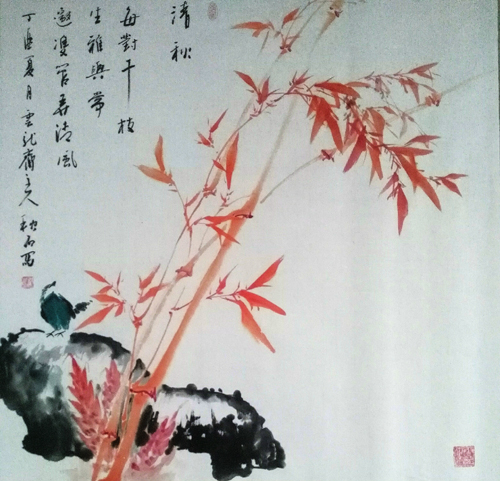 清秋
每對千枝
生雅興常
邀管弄清風
丁酉夏月雲龍齋主人 秋石寫